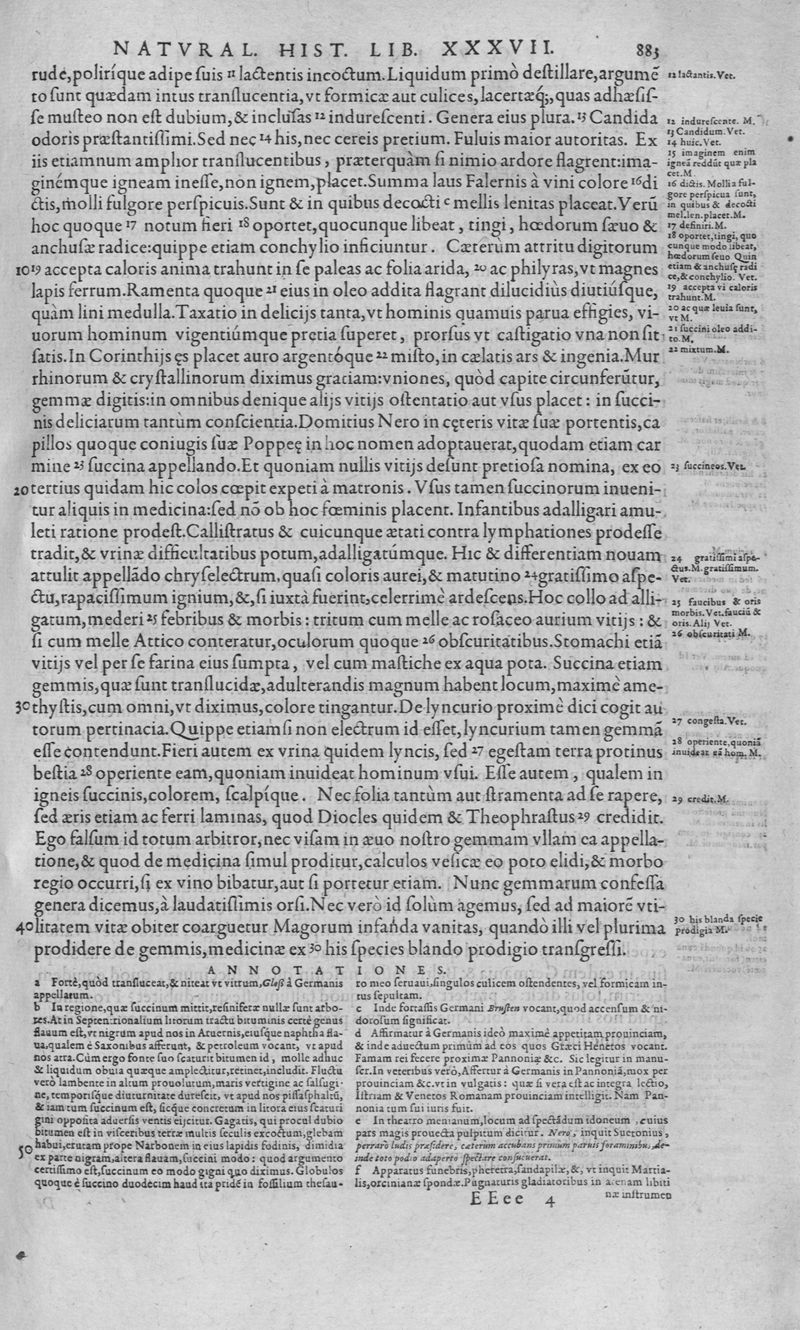 NATVRAL. HIST. LIB. XXXVII. 883
rude,poliríque adipe suis 11 lactentis incoctum.Liquidum primò destillare,argumẽ
to sunt quædam intus transſlucentia,vt formicæ aut culices,lacertæq́;,quas adhæsis-
se musteo non est dubium,& inclusas 12 indurescenti. Genera eius plura. 13 Candida
odoris præstantissimi.Sed neç 14 his,nec cereis pretium. Fuluis maior autoritas. Ex
iis etiamnum amplior translucentibus, præterquàm si nimio ardore flagrent:ima-
ginémque igneam inesse,non ignem,placet.Summa laus Falernis à vini colore 16 di
ctis,molli fulgore perspicuis.Sunt & in quibus decocti c mellis lenitas placeat.Verũ
hoc quoque 17 notum fieri 18 oportet,quocunque libeat, tingi, hœdorum sæuo &
anchusæ radice:quippe etiam conchylio inficiuntur. Cæterùm attritu digitorum
10 19 accepta caloris anima trahunt in se paleas ac folia arida, 20 ac philyras,vt magnes
lapis ferrum.Ramenta quoque 21 eius in oleo addita flagrant dilucidiùs diutiúsque,
quàm lini medulla.Taxatio in delicijs tanta,vt hominis quamuis parua effigies, vi-
uorum hominum vigentiúmque pretia superet, prorsus vt castigatio vna non sit
satis.In Corinthijs ęs placet auro argentóque 22 misto,in cælatis ars & ingenia.Mur
rhinorum & crystallinorum diximus gratiam:vniones, quòd capite circunferũtur,
gemmæ digitis:in omnibus denique alijs vitijs ostentatio aut vsus placet: in succi-
nis deliciarum tantùm conscientia.Domitius Nero in cęteris vitæ suæ portentis,ca
pillos quoque coniugis suæ Poppeę in hoc nomen adoptauerat,quodam etiam car
mine 23 succina appellando.Et quoniam nullis vitijs desunt pretiosa nomina, ex eo
20 tertius quidam hic colos cœpit expeti à matronis. Vsus tamen succinorum inueni-
tur aliquis in medicina:sed nõ ob hoc fœminis placent. Infantibus adalligari amu-
leti ratione prodest.Callistratus & cuicunque ætati contra lymphationes prodesse
tradit,& vrinæ difficultatibus potum,adalligatúmque. Hic & differentiam nouam
attulit appellãdo chryselectrum,quasi coloris aurei,& matutino 24 gratissimo aspe-
ctu,rapacissimum ignium,&,si iuxtà fuerint,celerrimè ardescens.Hoc collo ad alli-
gatum,mederi 25 febribus & morbis: tritum cum melle ac rosaceo aurium vitijs: &
si cum melle Attico conteratur,oculorum quoque 26 obscuritatibus.Stomachi etiã
vitijs vel per se farina eius sumpta, vel cum mastiche ex aqua pota. Succina etiam
gemmis,quæ sunt translucidæ,adulterandis magnum habent locum,maximè ame-
30 thystis,cum omni,vt diximus,colore tingantur.De lyncurio proximè dici cogit au
torum pertinacia.Quippe etiamsi non electrum id esset,lyncurium tamen gemmã
esse contendunt.Fieri autem ex vrina quidem lyncis, sed 27 egestam terra protinus
bestia 28 operiente eam,quoniam inuideat hominum vsui. Esse autem, qualem in
igneis succinis,colorem, scalpíque. Nec folia tantùm aut stramenta ad se rapere,
sed æris etiam ac ferri laminas, quod Diocles quidem & Theophrastus 29 credidit.
Ego falsum id totum arbitror,nec visam in æuo nostro gemmam vllam ea appella-
tione,& quod de medicina simul proditur,calculos vesicæ eo poto elidi,& morbo
regio occurri,si ex vino bibatur,aut si portetur etiam. Nunc gemmarum confessa
genera dicemus,à laudatissimis orsi.Nec verò id solùm agemus, sed ad maiorẽ vti-
40 litatem vitæ obiter coarguetur Magorum infanda vanitas, quandò illi vel plurima
prodidere de gemmis,medicinæ ex 30 his species blando prodigio transgressi.
11 lactantis.Vet.
12 indurescente. M.
13 Candidum.Vet.
14 huic.Vet.
15 imaginem enim
igneã reddũt quæ pla
cet.M
16 dictis. Mollia ful-
gore perspicua sunt,
in quibus & decocti
mel.len.placet.M.
17 definiri.M.
18 oportet,tingi, quo
cunque modo libeat,
hœdorum seuo Quin
etiam & anchusę radi
ce,& conchylio. Vet.
19 accepta vi caloris
trahunt.M.
20 ac quæ leuia sunt,
vt M.
21 succini oleo addi-
to.M.
22 mixtum.M.
23 succineos.Vet.
24 gratissimi aspe-
ctus.M.gratissimum.
Vet.
25 faucibus & oris
morbis.Vet.fauciũ &
oris.Alij Vet.
26 obscuritati M.
27 congesta.Vet.
28 operiente,quoniã
inuideat eã hom. M.
29 credit.M.
30 his blanda specie
prodigia M.
ANNOTATIONES.
a Fortè,quòd transluceat,& niteat vt vitrum,Glesi à Germanis
appellatum.
b In regione,quæ succinum mittit,resiniferæ nullæ sunt arbo-
res.At in Septentrionalium litorum tractu bituminis certè genus
flauum est,vt nigrum apud nos in Aruernis,eiusque naphtha fla-
ua,qualem è Saxonibus afferunt, & petroleum vocant, vt apud
nos atra.Cùm ergo fonte suo scaturit bitumen id, molle adhuc
& liquidum obuia quæque amplectitur,retinet,includit. Fluctu
verò lambente in altum prouolutum,maris vertigine ac salsugi-
ne, temporisque diuturnitate durescit, vt apud nos pissasphaltũ,
& iam tum succinum est, sicque concretum in litora eius scaturi
gini opposita aduersis ventis eijcitur. Gagatis, qui procul dubio
bitumen est in visceribus terræ multis seculis excoctum,glebam
50 habui,erutam prope Narbonem in eius lapidis fodinis, dimidia
ex parte nigram,altera flauam,succini modo: quod argumento
certissimo est,succinum eo modo gigni quo diximus. Globulos
quoque è succino duodecim haud ita pridẽ in fossilium thesau-
ro meo seruaui,singulos culicem ostendentes, vel formicam in-
tus sepultam.
c Inde fortassis Germani Brusten vocant,quod accensum & ni-
dorosum significat.
d Affirmatur à Germanis ideò maximè appetitam prouinciam,
& inde aduectum primùm ad eos quos Græci Henetos vocant.
Famam rei fecere proximæ Pannoniæ &c. Sic legitur in manu-
scr.In veteribus verò,Affertur à Germanis in Pannoniã,mox per
prouinciam &c.vt in vulgatis: quæ si vera est ac integra lectio,
Istriam & Venetos Romanam prouinciam intelligit. Nam Pan-
nonia tum sui iuris fuit.
e In theatro menianum,locum ad spectãdum idoneum, cuius
pars magis prouecta pulpitum dicitur. Nero, inquit Suetonius,
perrarò ludis præsidere, cæterùm accubans primùm paruis foraminibus,de-
inde toto podio adaperto spectare consueuerat.
f Apparatus funebris,pheretra,sandapilæ,&, vt inquit Martia-
lis,orcinianæ spondæ.Pugnaturis gladiatoribus in arenam libiti
EEee 4
næ instrumen